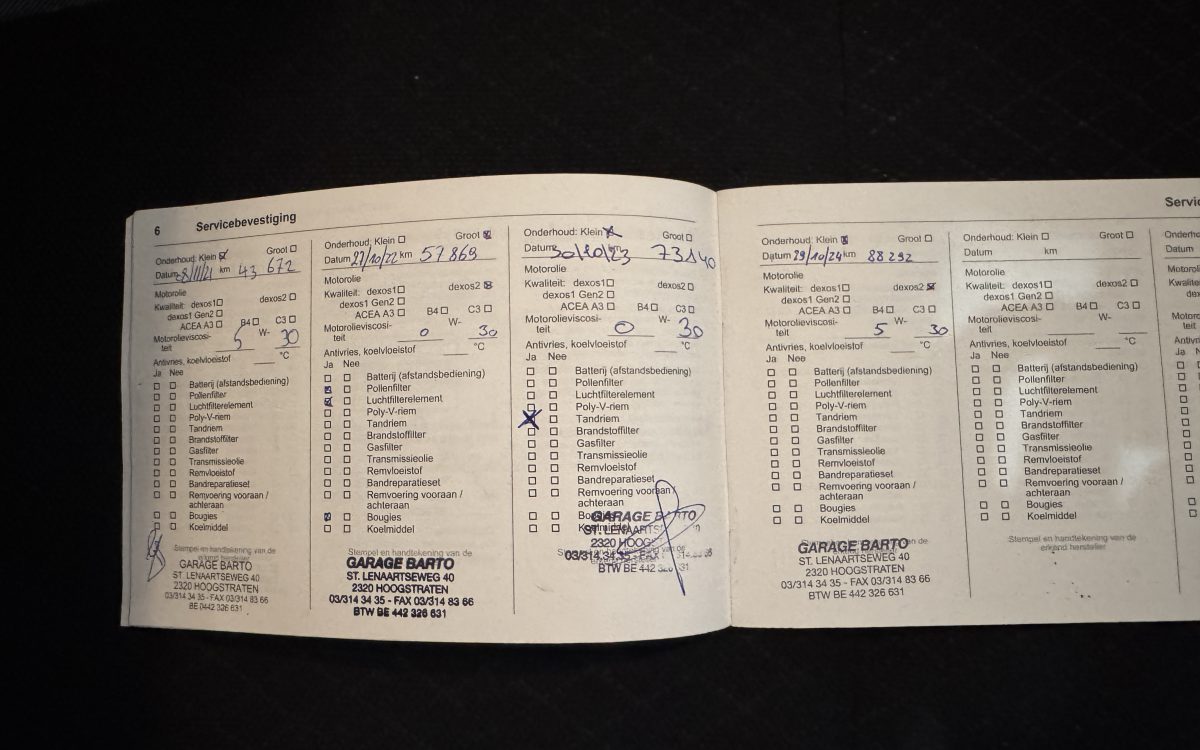 6 Servicebevestiging
Onderhoud: Klein Groot
Datum 8/11/21 km 43 672
Motorolie
Kwaliteit: dexos1 dexos2
dexos1 Gen2
ACEA A3 B4 C3
Motorolieviscosi- 5 W- 30
teit
Antivries, koelvloeistof ____ °C
Ja Nee
Batterij (afstandsbediening)
Pollenfilter
Luchtfilterelement
Poly-V-riem
Tandriem
Brandstoffilter
Gasfilter
Transmissieolie
Remvloeistof
Bandreparatieset
Remvoering vooraan /
achteraan
Bougies
Koelmiddel
Stempel en handtekening van de
erkend hersteller
GARAGE BARTO
ST. LENAARTSEWEG 40
2320 HOOGSTRATEN
03/314 34 35 - FAX 03/314 83 66
BE 0442 326 631
Onderhoud: Klein Groot
Datum 27/10/22 km 57 869
Motorolie
Kwaliteit: dexos1 dexos2
dexos1 Gen2
ACEA A3 B4 C3
Motorolieviscosi- 0 W- 30
teit
Antivries, koelvloeistof ____ °C
Ja Nee
Batterij (afstandsbediening)
Pollenfilter
Luchtfilterelement
Poly-V-riem
Tandriem
Brandstoffilter
Gasfilter
Transmissieolie
Remvloeistof
Bandreparatieset
Remvoering vooraan /
achteraan
Bougies
Koelmiddel
Stempel en handtekening van de
GARAGE BARTO
ST. LENAARTSEWEG 40
2320 HOOGSTRATEN
03/314 34 35 - FAX 03/314 83 66
BTW BE 442 326 631
Onderhoud: Klein Groot
Datum 30/10/23 km 73140
Motorolie
Kwaliteit: dexos1 dexos2
dexos1 Gen2
ACEA A3 B4 C3
Motorolieviscosi- 0 W- 30
teit
Antivries, koelvloeistof ____ °C
Ja Nee
Batterij (afstandsbediening)
Pollenfilter
Luchtfilterelement
Poly-V-riem
Tandriem
Brandstoffilter
Gasfilter
Transmissieolie
Remvloeistof
Bandreparatieset
Remvoering vooraan /
achteraan
Bougies
Koelmiddel
GARAGE BARTO
ST. LENAARTS
2320 HOOG
03/314 34 35 - FAX
BTW BE 442 326 31
Servic
Onderhoud: Klein Groot
Datum 29/10/24 km 88 292
Motorolie
Kwaliteit: dexos1 dexos2
dexos1 Gen2
ACEA A3 B4 C3
Motorolieviscosi- 5 W- 30
teit
Antivries, koelvloeistof ____ °C
Ja Nee
Batterij (afstandsbediening)
Pollenfilter
Luchtfilterelement
Poly-V-riem
Tandriem
Brandstoffilter
Gasfilter
Transmissieolie
Remvloeistof
Bandreparatieset
Remvoering vooraan /
achteraan
Bougies
Koelmiddel
GARAGE BARTO
ST. LENAARTSEWEG 40
2320 HOOGSTRATEN
03/314 34 35 - FAX 03/314 83 66
BTW BE 442 326 631
Onderhoud: Klein Groot
Datum km
Motorolie
Kwaliteit: dexos1 dexos2
dexos1 Gen2
ACEA A3 B4 C3
Motorolieviscosi- W-
teit
Antivries, koelvloeistof ____ °C
Ja Nee
Batterij (afstandsbediening)
Pollenfilter
Luchtfilterelement
Poly-V-riem
Tandriem
Brandstoffilter
Gasfilter
Transmissieolie
Remvloeistof
Bandreparatieset
Remvoering vooraan /
achteraan
Bougies
Koelmiddel
Stempel en handtekening van de
erkend hersteller
Onderho
Datum
Motorol
Kwalite
Motor
teit
Antivri
Ja N